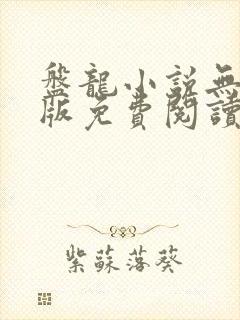 盤龍小說無
版免費閱讀
紫蘇落葵